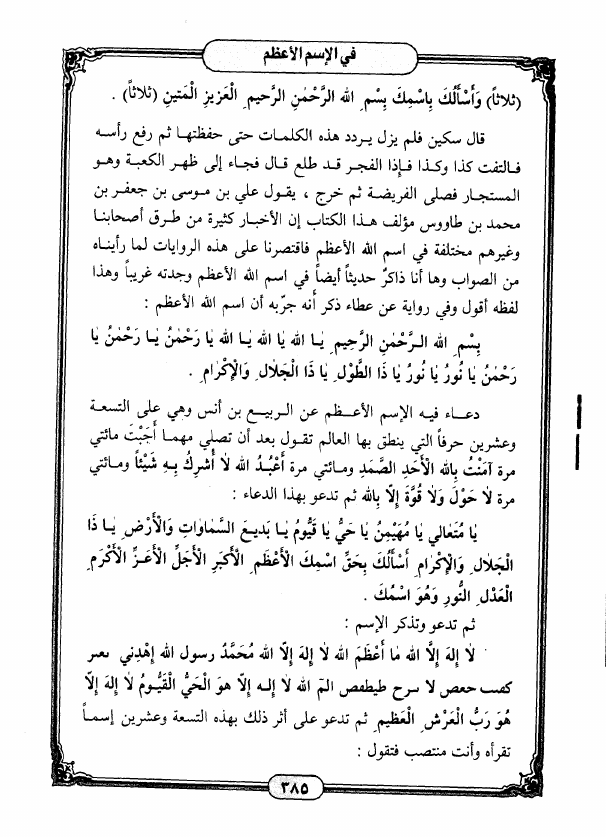 في الإسم الأعظم
(ثلاثاً) وَأَسْأَلُكَ بِاسْمِكَ بِسْمِ الله الرَّحْمٰنِ الرَّحيمِ الْعَزيزِ الْمَتينِ (ثلاثاً) .
قال سكين فلم يزل يردد هذه الكلمات حتى حفظتها ثم رفع رأسه
فالتفت كذا وكذا فإذا الفجر قد طلع قال فجاء إلى ظهر الكعبة وهو
المستجار فصلى الفريضة ثم خرج ، يقول علي بن موسى بن جعفر بن
محمد بن طاووس مؤلف هذا الكتاب إن الأخبار كثيرة من طرق أصحابنا
وغيرهم مختلفة في اسم الله الأعظم فاقتصرنا على هذه الروايات لما رأيناه
من الصواب وها أنا ذاكرٌ حديثاً أيضاً في اسم الله الأعظم وجدته غريباً وهذا
لفظه أقول وفي رواية عن عطاء ذكر أنه جرّبه أن اسم الله الأعظم :
بِسْمِ الله الرَّحْمٰنِ الرَّحيمِ يٰا الله يٰا الله يٰا الله يٰا رَحْمٰنُ يٰا رَحْمٰنُ يٰا
رَحْمٰنُ يٰا نُورُ يٰا نُورُ يٰا ذَا الطَّوْلِ يٰا ذَا الْجَلالِ وَالْإِكْرٰامِ .
دعاء فيه الإسم الأعظم عن الربيع بن أنس وهي على التسعة
وعشرين حرفاً التي ينطق بها العالم تقول بعد أن تصلي مهما أَجَبْتَ مائتي
مرة آمَنْتُ بِالله الْأَحَدِ الصَّمَدِ ومائتي مرة أَعْبُدُ الله لٰا أُشرِكُ بِهِ شَيْئاً ومائتي
مرة لٰا حَوْلَ وَلٰا قُوَّةَ إِلّا بِالله ثم تدعو بهذا الدعاء :
يٰا مُتَعٰالي يٰا مُهَيْمِنُ يٰا حَيُّ يٰا قَيُّومُ يٰا بَديعَ السَّمٰاوٰاتِ وَالْأَرْضِ يٰا ذَا
الْجَلالِ وَالْإِكْرٰامِ أَسْأَلُكَ بِحَقِّ اسْمِكَ الْأَعْظَمِ الْأَكبَرِ الْأَجَلِّ الْأَعَزِّ الْأَكْرَمِ
الْعَدْلِ النُّورِ وَهُوَ اسْمُكَ .
ثم تدعو وتذكر الإسم :
لٰا إِلهَ إِلَّا الله مٰا أَعْظَمَ الله لٰا إِلهَ إِلّا الله مُحَمَّدُ رسول الله إِهْدِني
كفسـ حعص لا سرح طيطفص الٓمٓ الله لٰا إِلـهَ إِلّا هوَ الْحَيُّ الْقَيُّومُ لٰا إِلهَ إِلّا
هُوَ رَبُّ الْعَرْشِ الْعَظيمِ ثم تدعو على أثر ذلك بهذه التسعة وعشرين إسماً
تقرأه وأنت منتصب فتقول :
٣٨٥